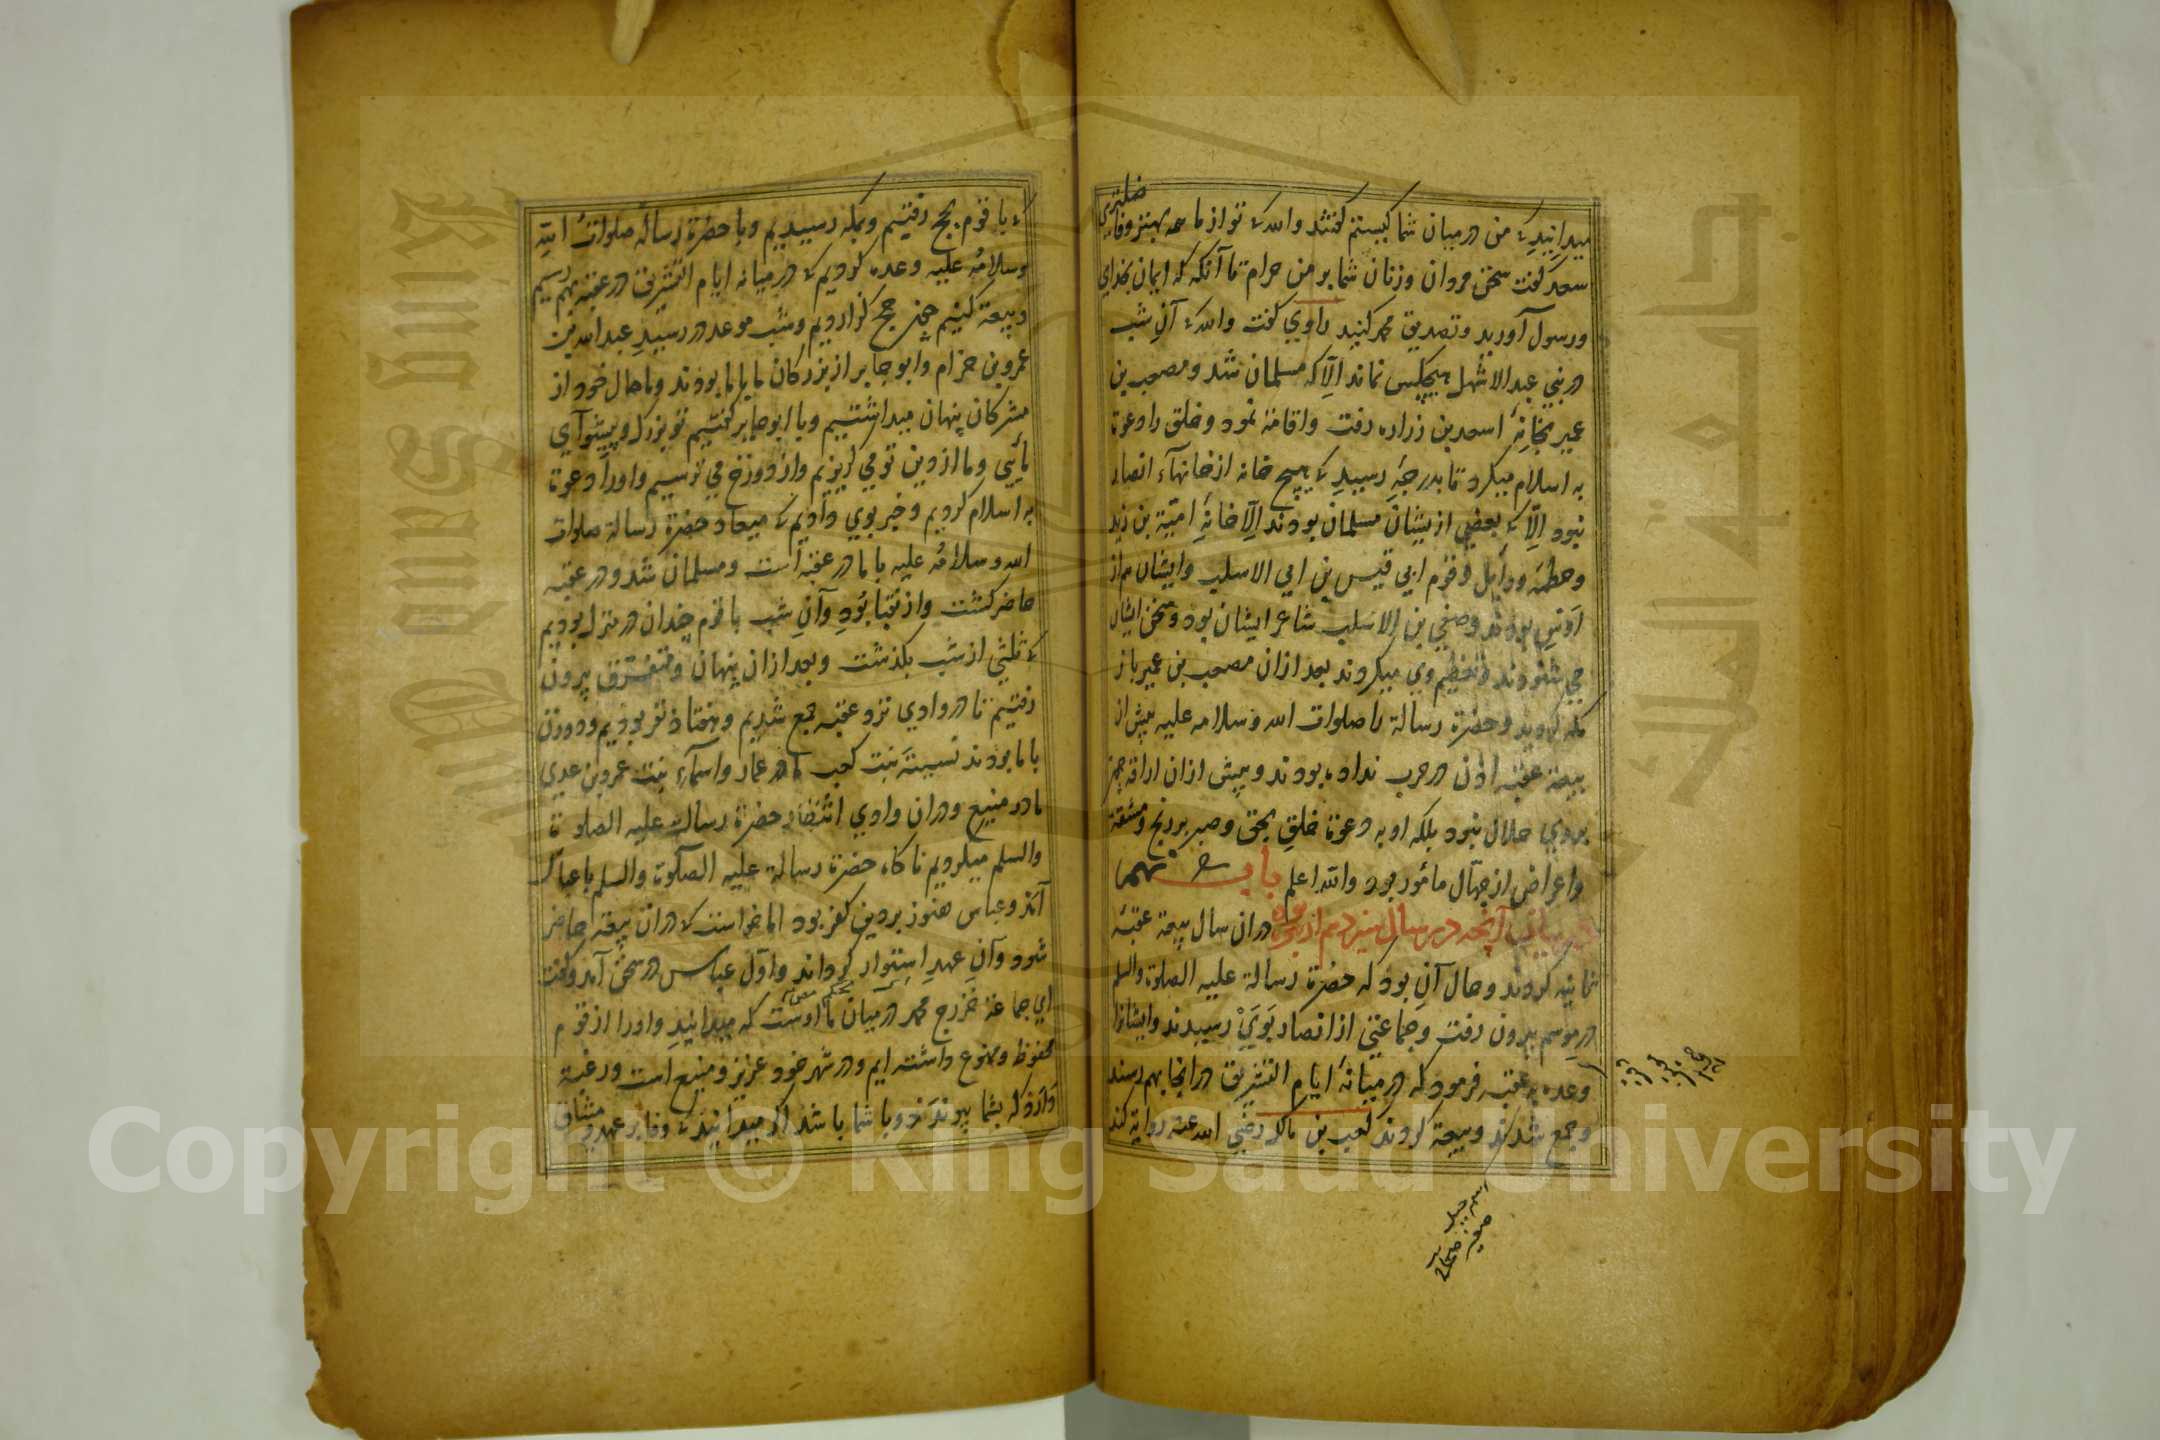 میدانید که من در میان شما کیستم گفتند والله که تو از ما همه بهتر و فاضلتری
سعد گفت سخن مردان و زنان شما بر من حرام تا آنکه که ایمان بخدای
و رسول آورید و تصدیق محمد کنید راوی گفت والله که آن شب
در بنی عبد الاشهل هیچکس نماند الّا که مسلمان شد و مصعب بن
عمیر بخانهٔ اسعد بن زراره رفت و اقامة نمود و خلق را دعوة
به اسلام میکرد تا بدرجهٔ رسید که هیچ خانه از خانهاء انصار
نبود الّا که بعضی ازیشان مسلمان بودند الّا خانهٔ امیّة بن زید
و خطمه و وایل و قوم ابی قیس بن ابی الاسلب و ایشان هم از
اوس بودند و صیفی بن الاسلب شاعر ایشان بود و سخن ایشان
می شنودند و تعظیم وی میکردند بعد ازان مصعب بن عمیر باز
مکه گردید و حضرة رسالة را صلوات الله و سلامه علیه پیش از
بیعة عقبه اذن در حرب نداده بودند و پیش ازان اراقة
بروی حلال نبود بلکه او به دعوة خلق بحق و صبر بر رنج و مشقة
و اعراض از جهّال مأمور بود والله اعلم باب نهم
در بیان آنچه در سال سیزدهم از نبوة دران سال بیعة عقبهٔ
ثانیه کردند و حال آن بود که حضرة رسالة علیه الصلوة والسلم
در موسم بیرون رفت و جماعتی از انصار بَوَیْ رسیدند و ایشانرا
وعده به عقبه فرمود که در میانهٔ ایام التشریق در آنجا بهم رسند
و جمع شدند و بیعة کردند کعب بن مالک رضی الله عنه روایة کند
اسم جبل
که با قوم بحج رفتیم و بمکه رسیدیم و با حضرة رسالة صلوات الله
و سلامه علیه وعده کردیم که در میانه ایام التشریق در عقبه بهم رسیم
و بیعة کنیم چون حج گزاردیم و شب موعد در رسید عبد الله بن
عمرو بن حزام و ابو جابر از بزرکان ما با ما بودند و ما حال خود از
مشرکان پنهان میداشتیم و با ابو جابر گفتیم تو بزرک و پیشوای
مایی و ما از دین تو می کریزیم و از دوزخ می ترسیم و اورا دعوة
به اسلام کردیم و خبر بوی دادیم که میعاد حضرة رسالة صلوات
الله و سلامه علیه با ما در عقبه است و مسلمان شد و در عقبه
حاضر کشت و از نقبا بود و آن شب با قوم خودان در منزل بودیم
که ثلثی از شب بکذشت و بعد ازان پنهان و متفرق بیرون
رفتیم تا در وادی نزد عقبه جمع شدیم و هفتاد نفر بودیم و دو زن
با ما بودند نسیبة بنت کعب مادر عمار و اسماء بنت عمرو بن عدی
مادر منیع و دران وادی انتظار حضرة رسالت علیه الصلوة
والسلم میکردیم ناکاه حضرة رسالة علیه الصلوة والسلم با عباس
آمد و عباس هنوز بر دین کفر بود اما خواست که دران بیعة حاضر
شود و آن عهد استوار کرداند و اول عباس در سخن آمد و گفت
ای جماعة خزرج محمد در میان ما اوست که میدانید و اورا از قوم
محفوظ و ممنوع داشته ایم و در شهر خود عزیز و منیع است و رغبة
دارد که بشما پیوندد و با شما باشد اکر میدانید که وفا بر عهد و میثاق
King Saud University
جامعة الملك سعود
Copyright © King Saud University